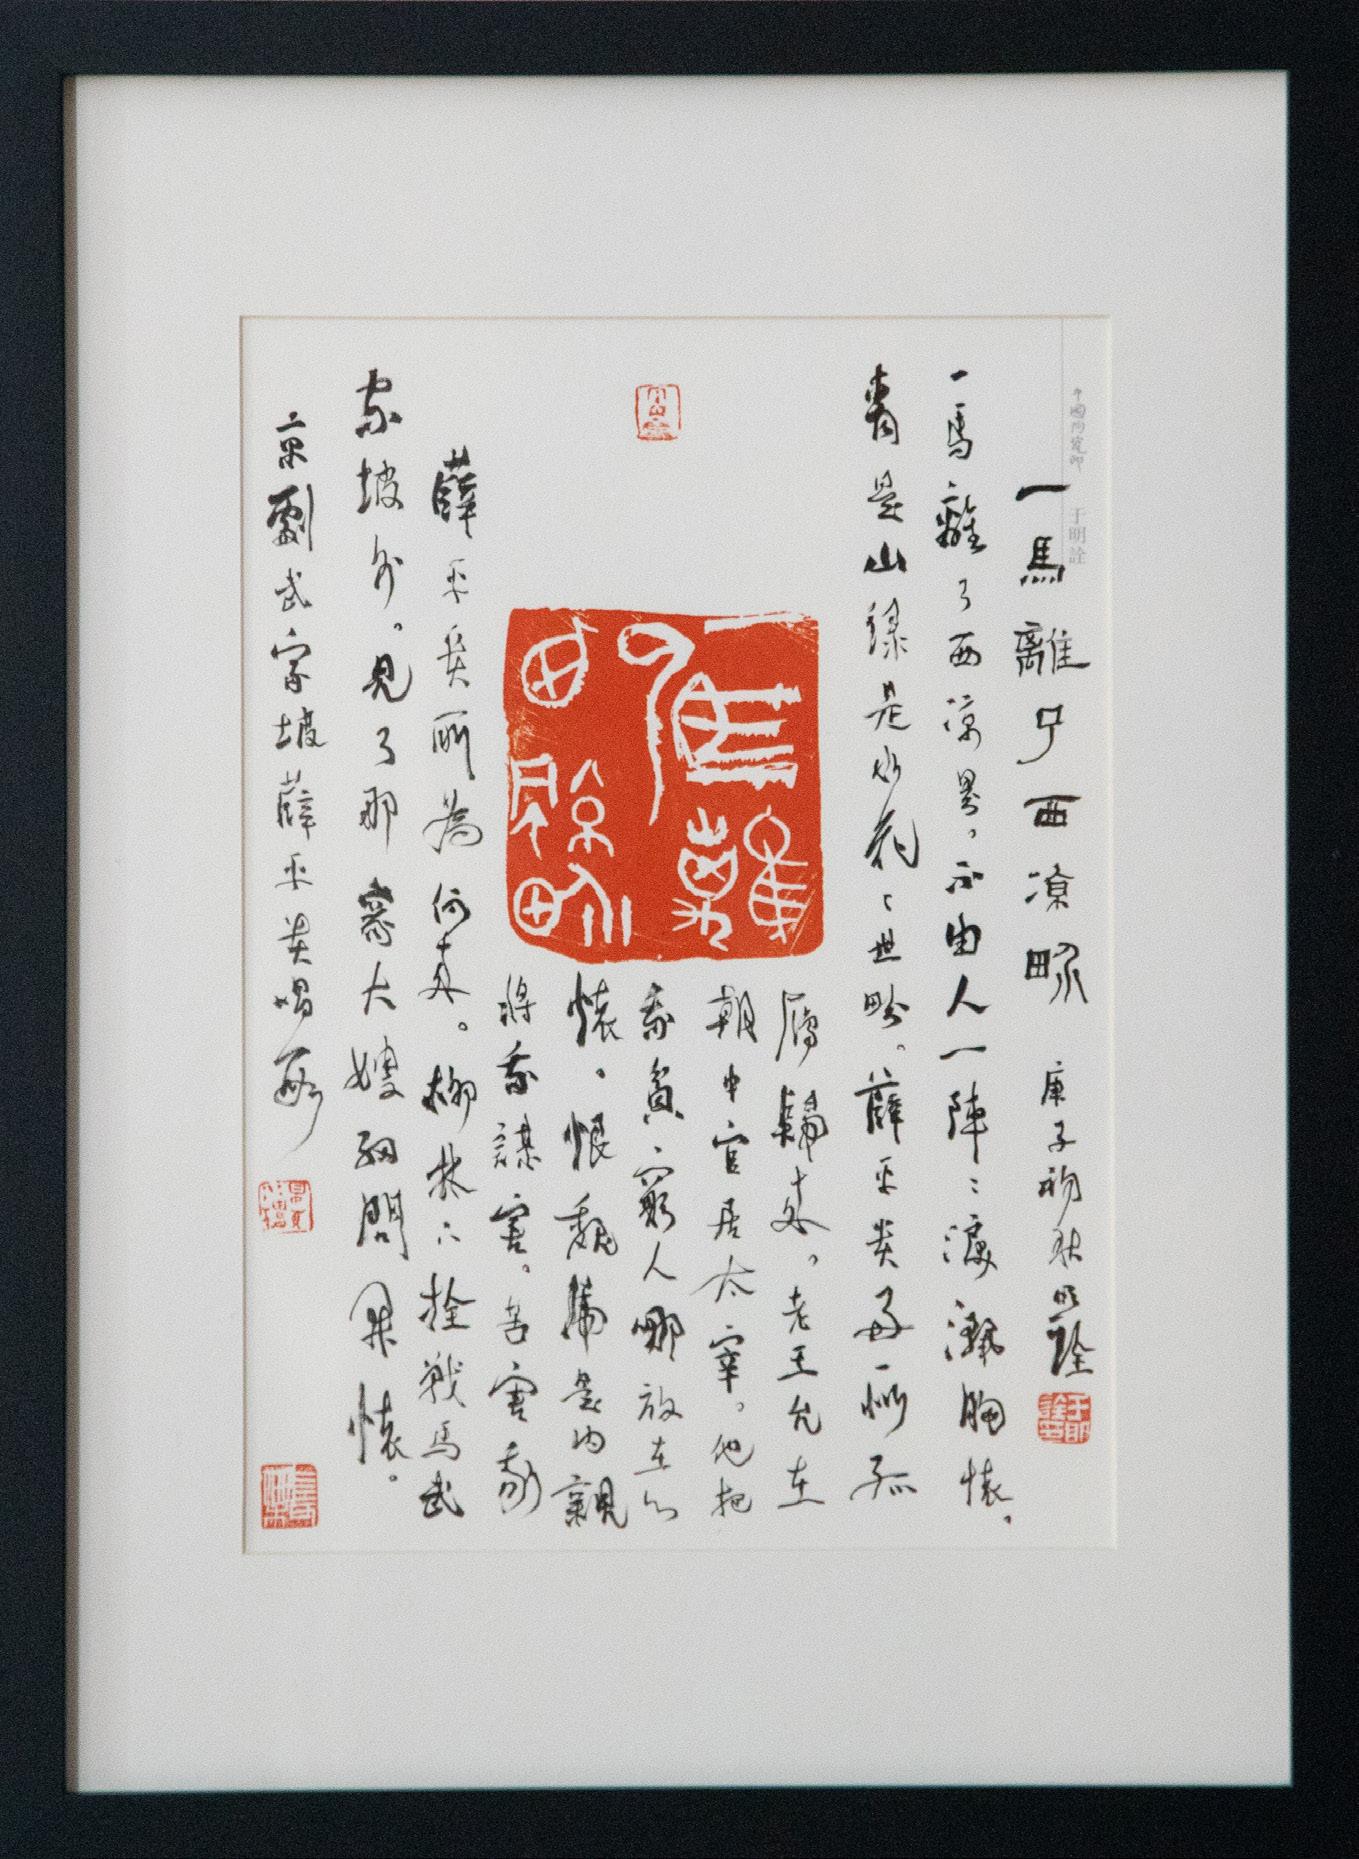 中國陶瓷印 于明詮
一馬離了西涼界 庚子初秋 明詮
一馬離了西涼界。不由人一陣〻淚灑胸懷。
青是山綠是水花〻世界。薛平貴好一似孤
雁歸來。老王允在
朝中官居太宰。他把
我貧〻窮人哪放在心
懷。恨魏虎是內親
將我謀害。苦害我
薛平貴所爲何來。柳林〻拴戰馬武
家坡外。見了那寡大嫂細問開懷。
京劇武家坡薛平貴唱段